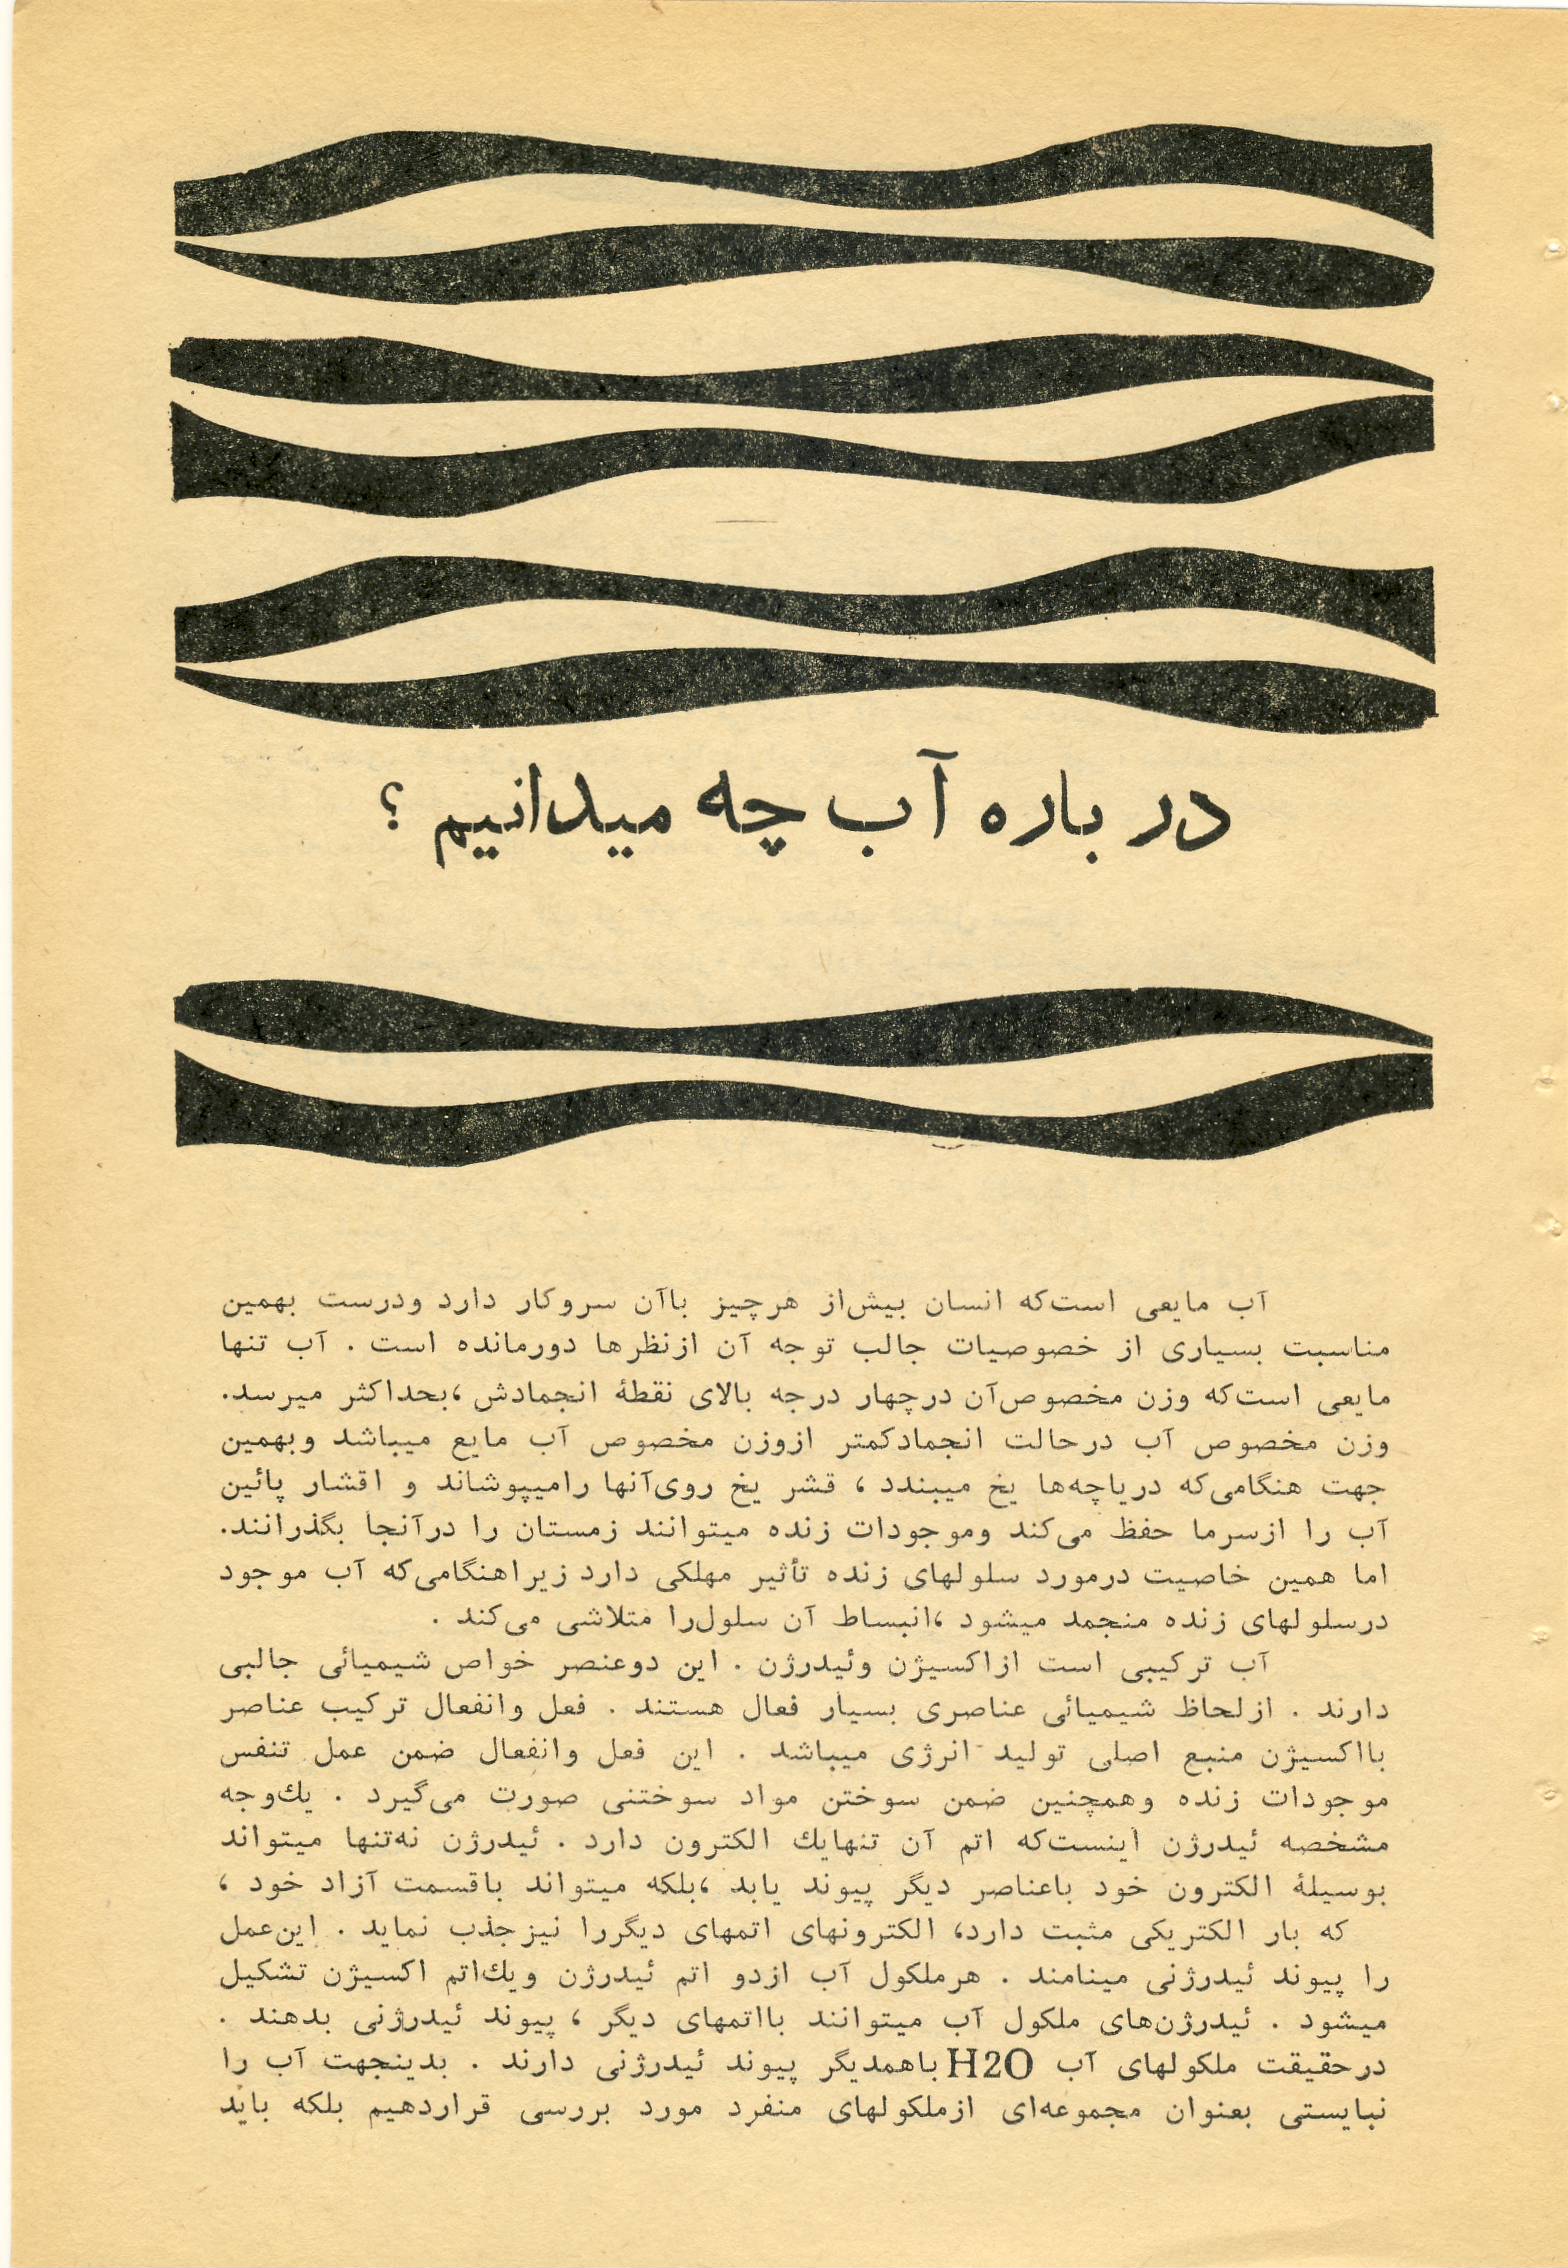 در باره آب چه میدانیم ؟
آب مایعی است‌که انسان بیش‌از هرچیز باآن سروکار دارد ودرست بهمین
مناسبت بسیاری از خصوصیات جالب توجه آن ازنظرها دورمانده است . آب تنها
مایعی است‌که وزن مخصوص‌آن درچهار درجه بالای نقطهٔ انجمادش ،بحداکثر میرسد.
وزن مخصوص آب درحالت انجمادکمتر ازوزن مخصوص آب مایع میباشد وبهمین
جهت هنگامی‌که دریاچه‌ها یخ میبندد ، قشر یخ روی‌آنها رامیپوشاند و اقشار پائین
آب را ازسرما حفظ می‌کند وموجودات زنده میتوانند زمستان را درآنجا بگذرانند.
اما همین خاصیت درمورد سلولهای زنده تأثیر مهلکی دارد زیراهنگامی‌که آب موجود
درسلولهای زنده منجمد میشود ،انبساط آن سلول‌را متلاشی می‌کند .
آب ترکیبی است ازاکسیژن وئیدرژن . این دوعنصر خواص شیمیائی جالبی
دارند . ازلحاظ شیمیائی عناصری بسیار فعال هستند . فعل وانفعال ترکیب عناصر
بااکسیژن منبع اصلی تولید انرژی میباشد . این فعل وانفعال ضمن عمل تنفس
موجودات زنده وهمچنین ضمن سوختن مواد سوختنی صورت می‌گیرد . یك‌وجه
مشخصه ئیدرژن اینست‌که اتم آن تنهایك الکترون دارد . ئیدرژن نه‌تنها میتواند
بوسیلهٔ الکترون خود باعناصر دیگر پیوند یابد ،بلکه میتواند باقسمت آزاد خود ،
که بار الکتریکی مثبت دارد، الکترونهای اتمهای دیگررا نیزجذب نماید . این‌عمل
را پیوند ئیدرژنی مینامند . هرملکول آب ازدو اتم ئیدرژن ویك‌اتم اکسیژن تشکیل
میشود . ئیدرژن‌های ملکول آب میتوانند بااتمهای دیگر ، پیوند ئیدرژنی بدهند .
درحقیقت ملکولهای آب H2O باهمدیگر پیوند ئیدرژنی دارند . بدینجهت آب را
نبایستی بعنوان مجموعه‌ای ازملکولهای منفرد مورد بررسی قراردهیم بلکه باید